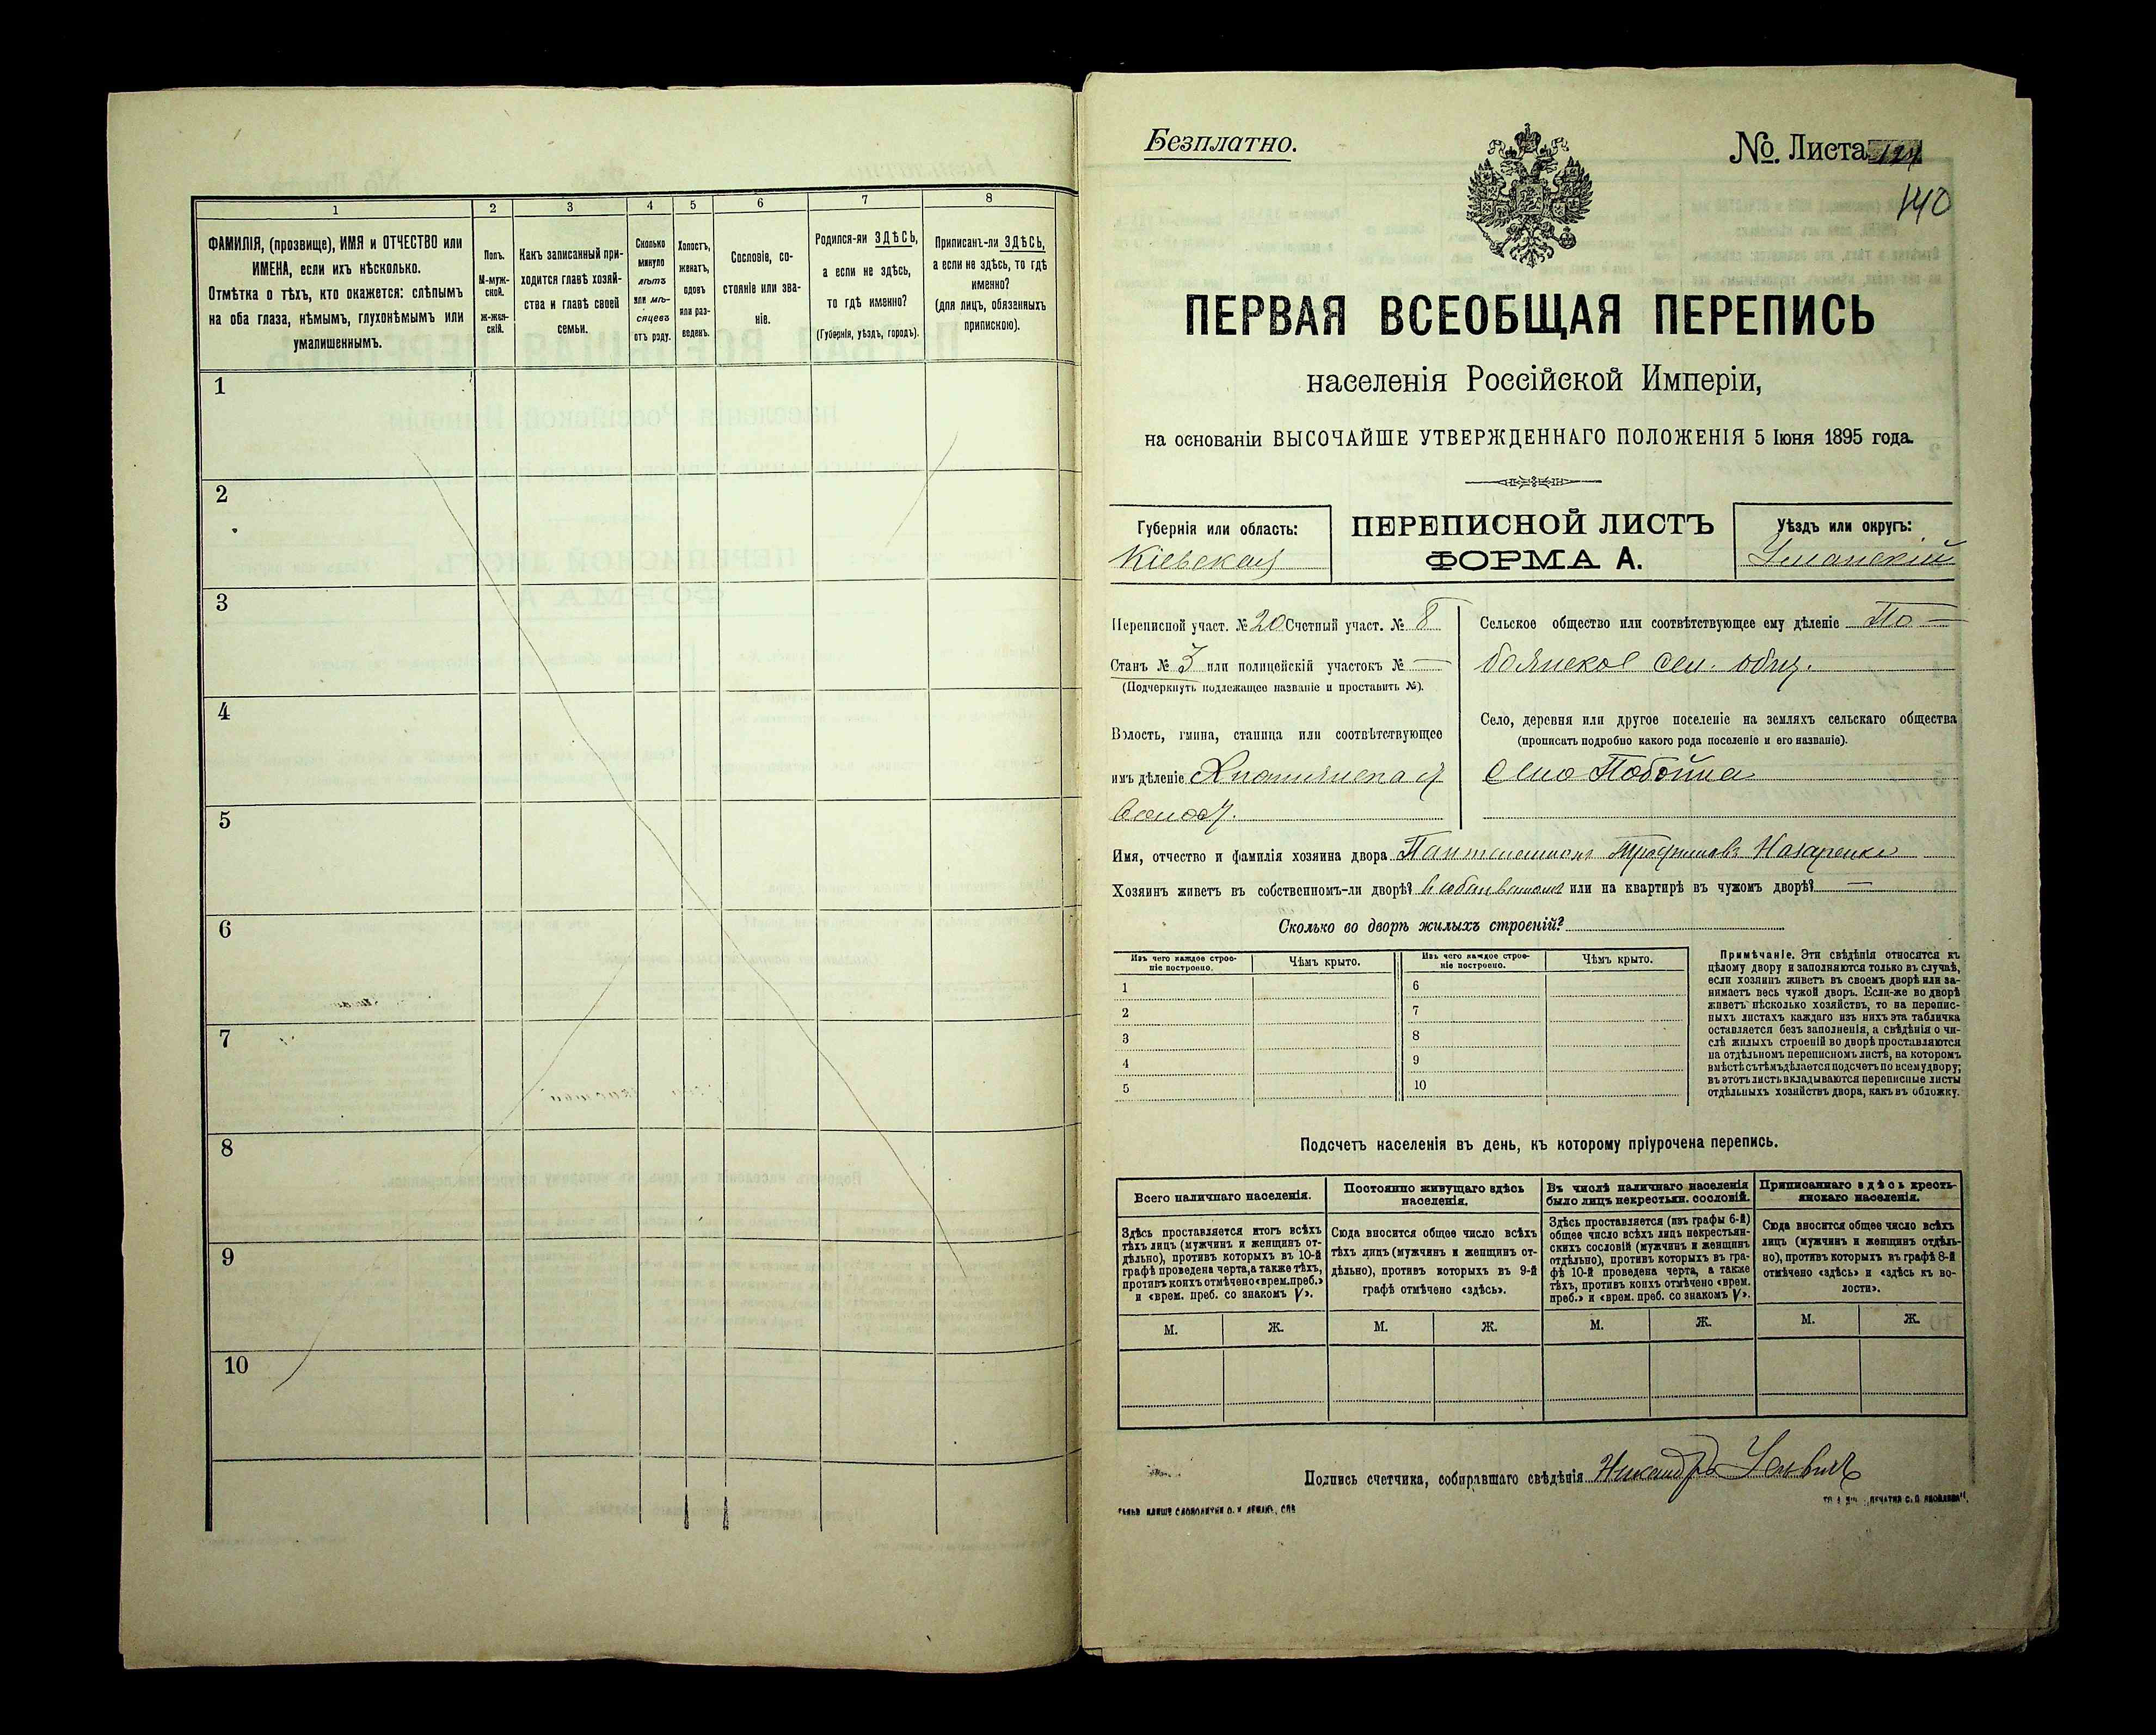 1
2
3
4
5
6
7
8
ФАМИЛІЯ, (прозвище), ИМЯ и ОТЧЕСТВО или
ИМЕНА, если ихъ нѣсколько.
Отмѣтка о тѣхъ, кто окажется: слѣпымъ
на оба глаза, нѣмымъ, глухонѣмымъ или
умалишеннымъ.
Полъ.
М-муж-
ской.
Ж-жен-
скій.
Какъ записанный при-
ходится главѣ хозяй-
ства и главѣ своей
семьи.
Сколько
минуло
лѣтъ
или мѣ-
сяцевъ
отъ роду.
Холостъ,
женатъ,
вдовъ
или раз-
веденъ.
Сословіе, со-
стояніе или зва-
ніе.
Родился-ли ЗДѢСЬ,
а если не здѣсь,
то гдѣ именно?
(Губернія, уѣздъ, городъ).
Приписанъ-ли ЗДѢСЬ,
а если не здѣсь, то гдѣ
именно?
(для лицъ, обязанныхъ
припискою).
1
2
3
4
5
6
7
8
9
10
Безплатно.
№. Листа 124
140
ПЕРВАЯ ВСЕОБЩАЯ ПЕРЕПИСЬ
населенія Россійской Имперіи,
на основаніи ВЫСОЧАЙШЕ УТВЕРЖДЕННАГО ПОЛОЖЕНІЯ 5 Іюня 1895 года.
Губернія или область:
Кіевская
ПЕРЕПИСНОЙ ЛИСТЪ
ФОРМА А.
Уѣздъ или округъ:
Уманскій
Переписной участ. № 20 Счетный участ. № 8
Станъ № 3 или полицейскій участокъ № —
(Подчеркнуть подлежащее названіе и проставить №).
Волость, гмина, станица или соотвѣтствующее
имъ дѣленіе
волос.
Сельское общество или соотвѣтствующее ему дѣленіе По-
боянское сел. общ.
Село, деревня или другое поселеніе на земляхъ сельскаго общества
(прописать подробно какого рода поселеніе и его названіе).
Село Побойна
Имя, отчество и фамилія хозяина двора Пантелеимонъ Трофимовъ Назаренко
Хозяинъ живетъ въ собственномъ-ли дворѣ? въ собственномъ или на квартирѣ въ чужомъ дворѣ? —
Сколько во дворѣ жилыхъ строеній?
Изъ чего каждое строе-
ніе построено.
Чѣмъ крыто.
Изъ чего каждое строе-
ніе построено.
Чѣмъ крыто.
1
2
3
4
5
6
7
8
9
10
Примѣчаніе. Эти свѣдѣнія относятся къ
цѣлому двору и заполняются только въ случаѣ,
если хозяинъ живетъ въ своемъ дворѣ или за-
нимаетъ весь чужой дворъ. Если-же во дворѣ
живетъ нѣсколько хозяйствъ, то на перепис-
ныхъ листахъ каждаго изъ нихъ эта табличка
оставляется безъ заполненія, а свѣдѣнія о чи-
слѣ жилыхъ строеній во дворѣ проставляются
на отдѣльномъ переписномъ листѣ, на которомъ
вмѣстѣ съ тѣмъ дѣлается подсчетъ по всему двору;
въ этотъ листъ вкладываются переписные листы
отдѣльныхъ хозяйствъ двора, какъ въ обложку.
Подсчетъ населенія въ день, къ которому пріурочена перепись.
Всего наличнаго населенія.
Постоянно живущаго здѣсь
населенія.
Въ числѣ наличнаго населенія
было лицъ некрестьян. сословій.
Приписаннаго здѣсь кресть-
янскаго населенія.
Здѣсь проставляется итогъ всѣхъ
тѣхъ лицъ (мужчинъ и женщинъ от-
дѣльно), противъ которыхъ въ 10-й
графѣ проведена черта, а также тѣхъ,
противъ коихъ отмѣчено «врем. преб.»
и «врем. преб. со знакомъ V».
Сюда вносится общее число всѣхъ
тѣхъ лицъ (мужчинъ и женщинъ от-
дѣльно), противъ которыхъ въ 9-й
графѣ отмѣчено «здѣсь».
Здѣсь проставляется (изъ графы 6-й)
общее число всѣхъ лицъ некрестьян-
скихъ сословій (мужчинъ и женщинъ
отдѣльно), противъ которыхъ въ гра-
фѣ 10-й проведена черта, а также
тѣхъ, противъ коихъ отмѣчено «врем.
преб.» и «врем. преб. со знакомъ V».
Сюда вносится общее число всѣхъ
лицъ (мужчинъ и женщинъ отдѣль-
но), противъ которыхъ въ графѣ 8-й
отмѣчено «здѣсь» и «здѣсь къ во-
лости».
М.
Ж.
М.
Ж.
М.
Ж.
М.
Ж.
Подпись счетчика, собиравшаго свѣдѣнія Никандръ